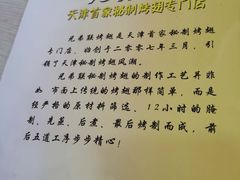 天津首家秘制烤翅专门店
兄弟联烤翅是天津首家秘制烤翅
专门店，始创于二零零七年三月，引
领了天津秘制烤翅风潮。
兄弟联秘制烤翅的制作工艺并非
如市面上传统的烤翅那样简单，而是
经严格的原材料筛选、12小时的腌
制、先蒸、后煮、最后烤制而成，前
后五道工序步步精心！